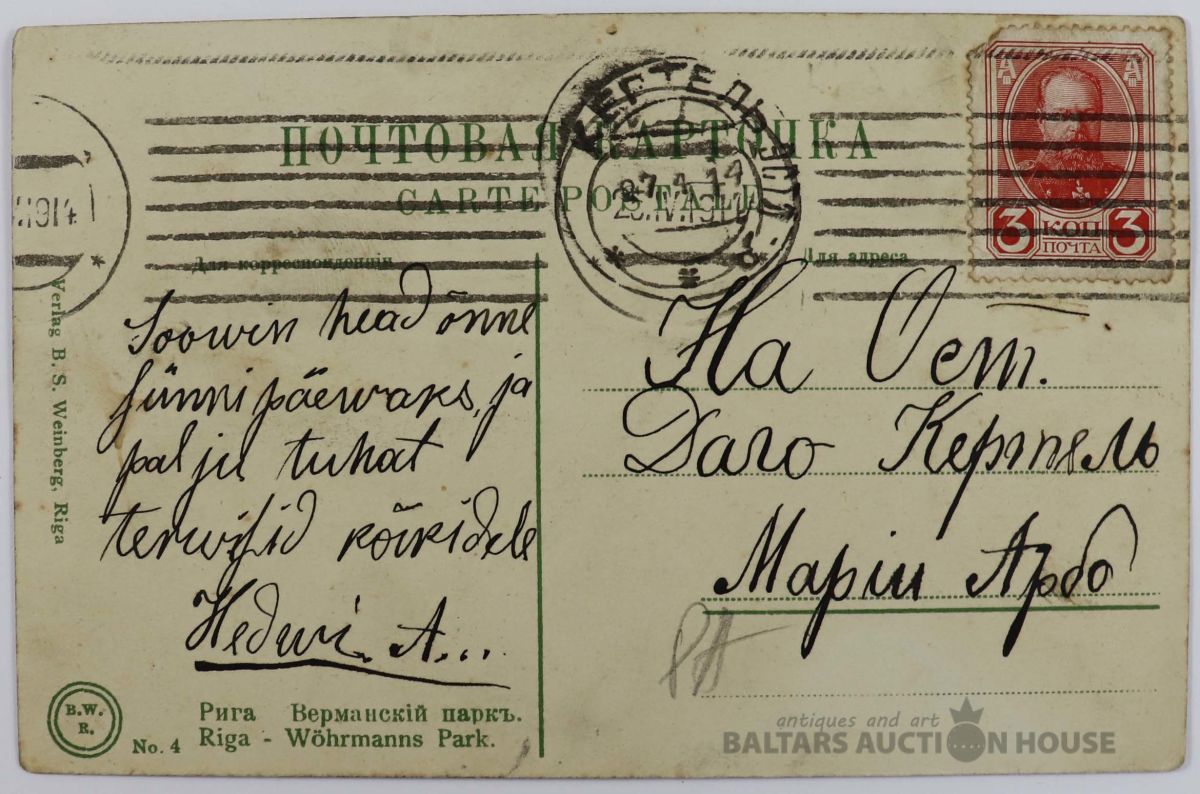 ПОЧТОВАЯ КАРТОЧКА
CARTE POSTALE
Для корреспонденціи
Для адреса
КЕРТЕЛЬ
27 4 14
1914
А А
3 КОП 3
ПОЧТА
Soowin head õnne
sünnipäewaks, ja
palju tuhat
terwisid kõikidele
Hedwi. A...
На Ост.
Даго Кертель
Маріи Арбо
РА
Verlag B. S. Weinberg, Riga
B.W.
R.
No. 4
Рига Верманскій паркъ.
Riga - Wöhrmanns Park.
antiques and art
BALTARS AUCTION HOUSE